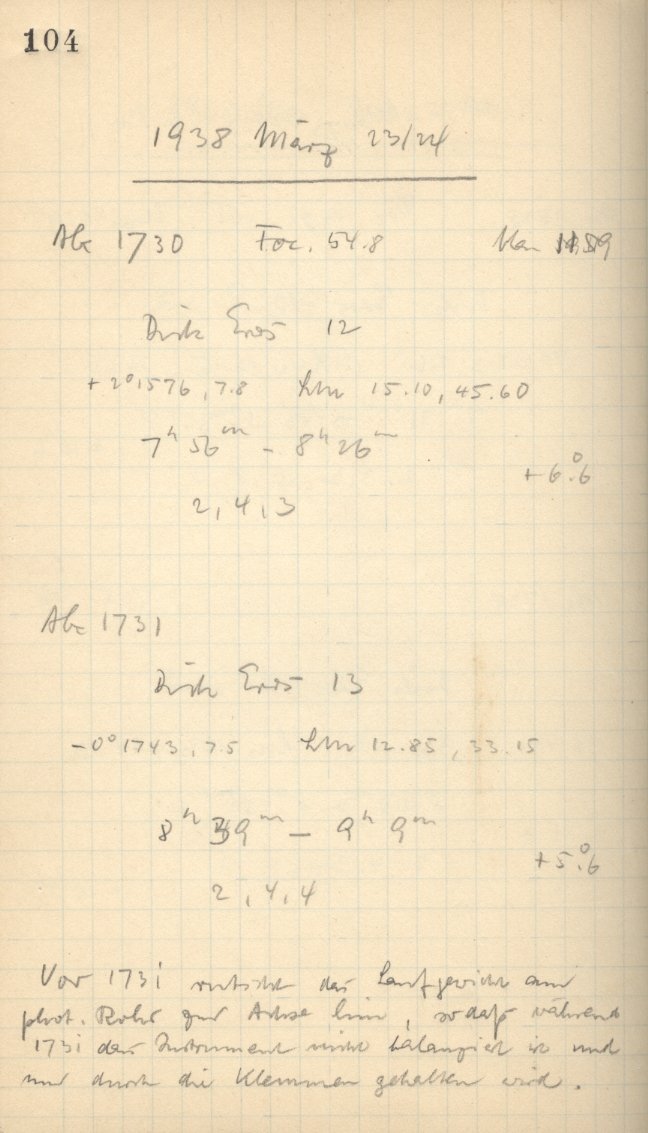 104
1938 März 23/24
1730 Foc. 54.8
Eros 12
+2°1576, 7.8 15.10, 45.60
7h 56m - 8h 26m
+6.°6
2, 4, 3
1731
Eros 13
-0°1743, 7.5 12.85, 33.15
8h 39m - 9h 9m
+5.°6
2, 4, 4
Vor 1731 rutscht das Laufgewicht am
phot. Rohr zur Achse hin, sodaß während
1731 das Instrument nicht balanziert ist und
nur durch die Klemmen gehalten wird.